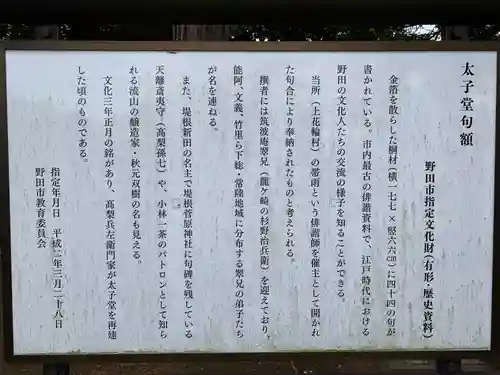 太子堂句額
野田市指定文化財(有形・歴史資料)
金箔を散らした絹材(横一七七×竪六六㎝)に四十四の句が
書かれている。市内最古の俳諧資料で、江戸時代における
野田の文化人たちの交流の様子を知ることができる。
当所(上花輪村)の帯雨という俳諧師を催主として開かれ
た句合により奉納されたものと考えられる。
撰者には筑波庵翠兄(龍ケ崎の杉野治兵衛)を迎えており、
能阿、文義、竹里ら下総・常陸地域に分布する翠兄の弟子たち
が名を連ねる。
また、堤根新田の名主で堤根菅原神社に句碑を残している
天離斎夷守(高梨孫七)や、小林一茶のパトロンとして知ら
れる流山の醸造家・秋元双樹の名も見える。
文化三年正月の銘があり、高梨兵左衛門家が太子堂を再建
した頃のものである。
指定年月日 平成二年三月二十八日
野田市教育委員会